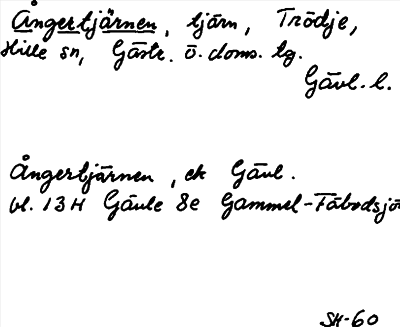 Ångertjärnen, tjärn, Trödje,
Hille sn, Gästr. ö. doms. tg.
Gävl. l.
Ångertjärnen, ek Gävl.
bl. 13H Gävle 8e Gammel-Fäbodsjö
SH-60